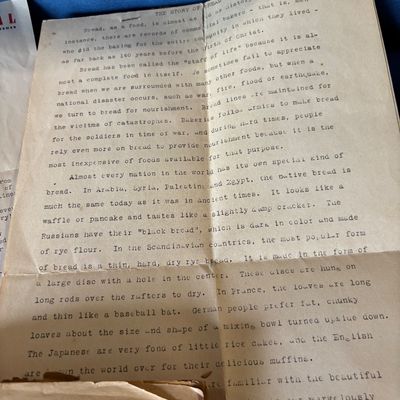 THE STORY OF BREAD
Bread, as a food, is almost as old as history. For
instance, there are records of commercial bakers - that is, men
who did the baking for the entire community in which they lived -
as far back as 160 years before the birth of Christ.
Bread has been called the "staff of life" because it is al-
most a complete food in itself. We sometimes fail to appreciate
bread when we are surrounded with many other foods, but when a
national disaster occurs, such as war, fire, flood or earthquake,
we turn to bread for nourishment. Bread lines are maintained for
the victims of catastrophes. Bakeries follow armies to make bread
for the soldiers in time of war, and during hard times, people
rely even more on bread to provide nourishment because it is the
most inexpensive of foods available for that purpose.
Almost every nation in the world has its own special kind of
bread. In Arabia, Syria, Palestine and Egypt, the native bread is
much the same today as it was in ancient times. It looks like a
waffle or pancake and tastes like a slightly damp cracker. The
Russians have their "black bread", which is dark in color and made
of rye flour. In the Scandinavian countries, the most popular form
of bread is a thin, hard, dry rye bread. It is made in the form of
a large disc with a hole in the center. These discs are hung on
long rods over the rafters to dry. In France, the loaves are long
and thin like a baseball bat. German people prefer fat, chunky
loaves about the size and shape of a mixing bowl turned upside down.
The Japanese are very fond of little rice cakes, and the English
are known the world over for their delicious muffins.
are familiar with the beautiful
marvelously